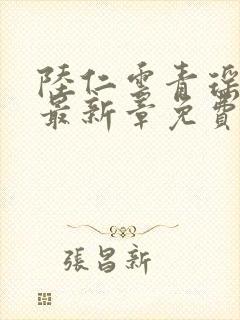 陸仁雲青瑶
最新章免費
張昌新